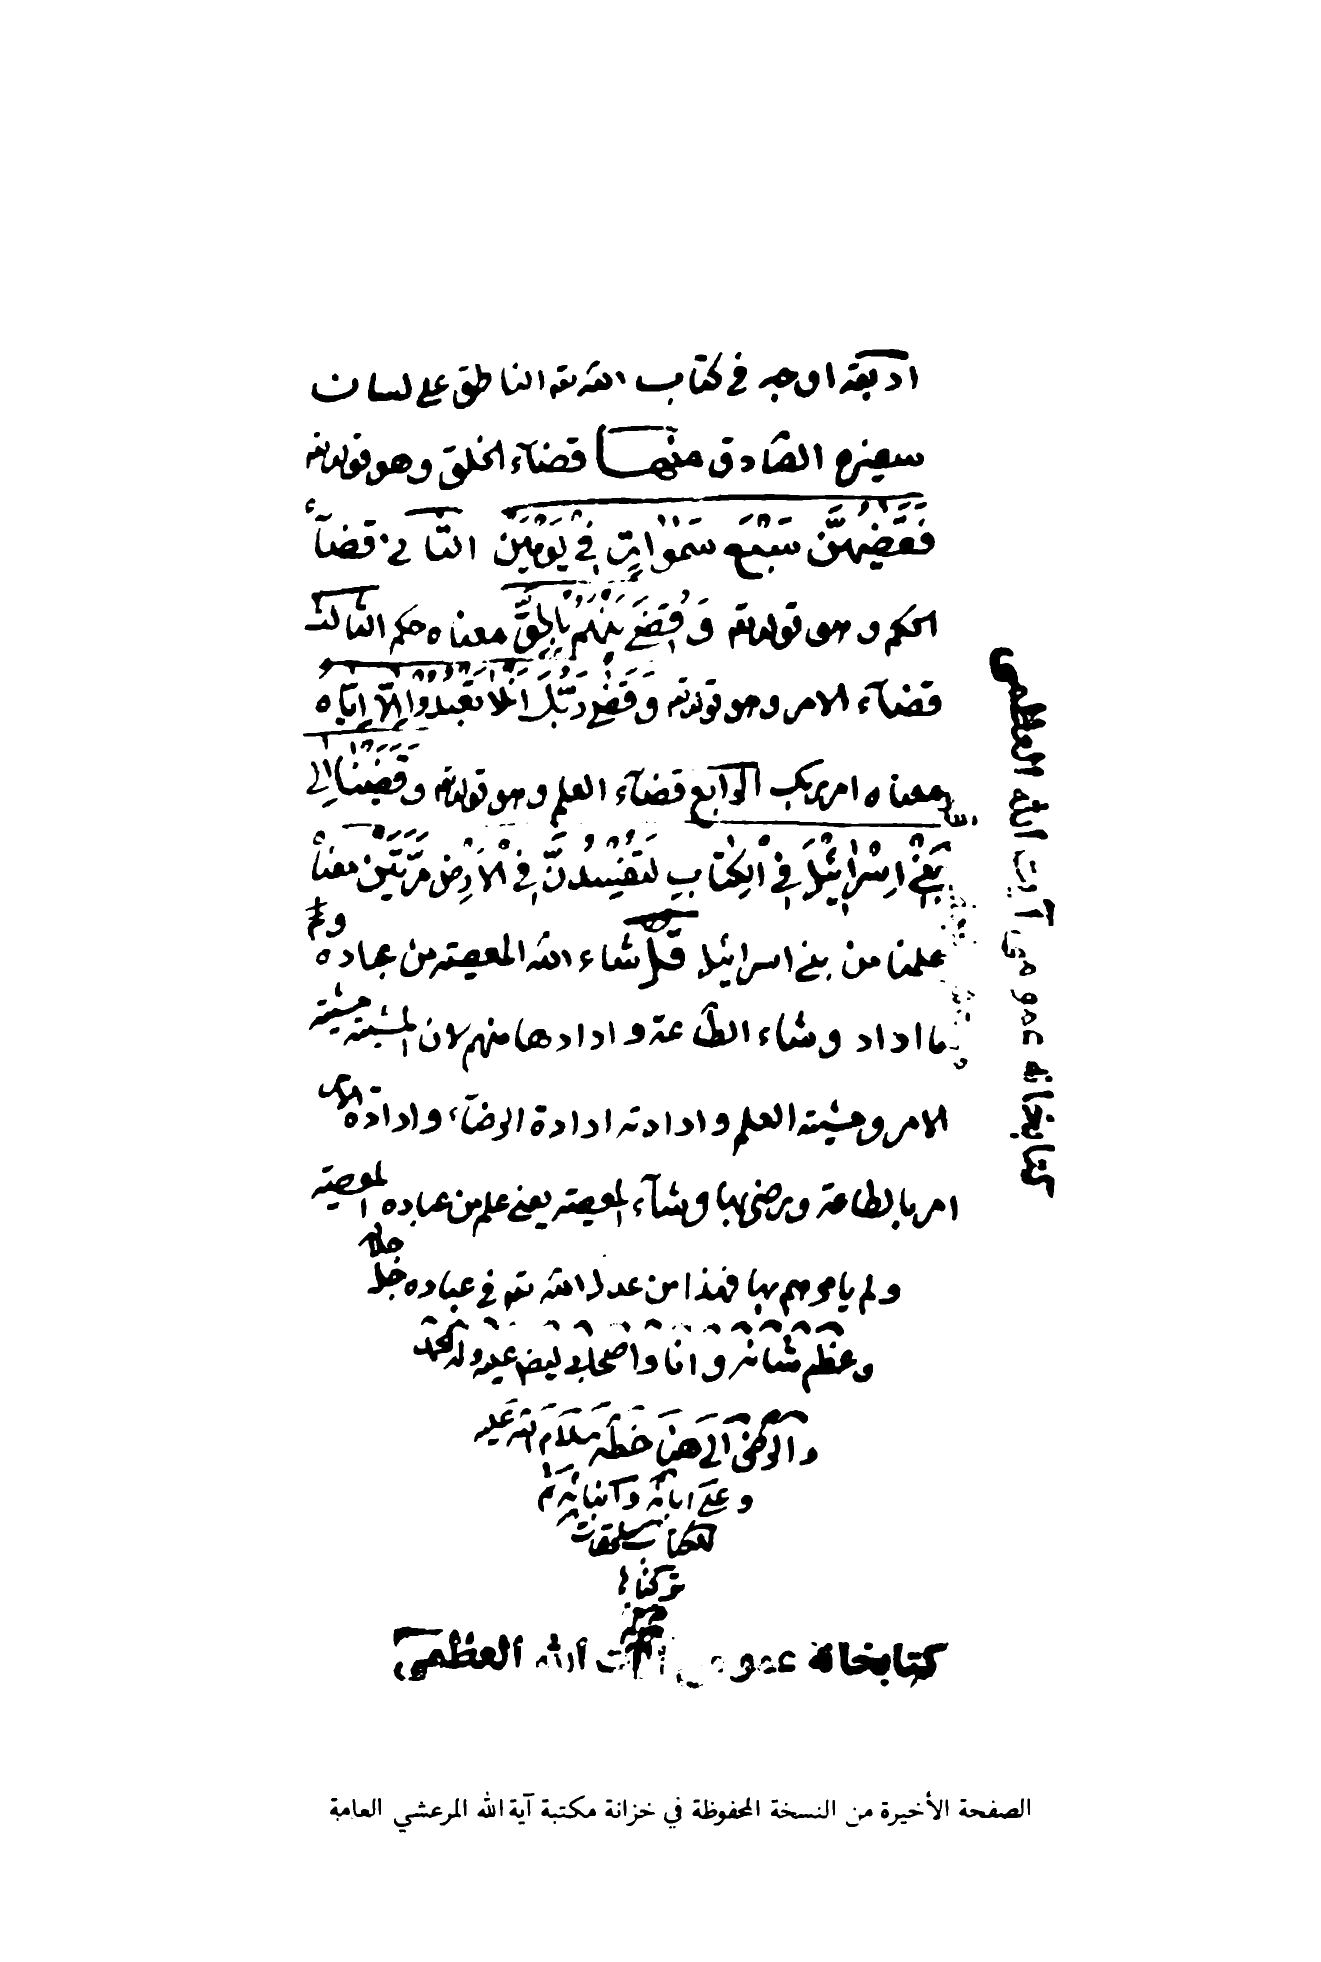 اربعة اوجه في كتاب الله تع الناطق على لسان
سفيره الصادق منها قضآء الخلق وهو قوله تع
فَقَضٰيهُنَّ سَبْعَ سَمٰوَاتٍ فِي يَوْمَيْنِ الثاني قضآء
الحكم وهو قوله تع وَقُضِيَ بَيْنَهُمْ بِالْحَقِّ معناه حكم الثالث
قضآء الامر وهو قوله تع وَقَضٰى رَبُّكَ اَلَّا تَعْبُدُوْا اِلَّا اِيَّاهُ
معناه امر ربك الرابع قضآء العلم وهو قوله تع وَقَضَيْنَا اِلٰى
بَنِيْ اِسْرَائِيْلَ فِي الْكِتَابِ لَتُفْسِدُنَّ فِي الْاَرْضِ مَرَّتَيْنِ معناه
علمنا من بني اسرائيل قد شاء الله المعصية من عباده و
ما اراد وشاء الطاعة وارادها منهم لان المشية مشية
الامر ومشية العلم وارادته ارادة الرضآء وارادة الامر
امر بالطاعة ورضى بها وشآء المعصية يعني علم من عباده المعصية
ولم يامرهم بها فهذا من عدل الله تع في عباده جل جلاله
وعظم شانه وانا واصحابي ايضا عليه وله الحمد
والى هنا خطه سلام الله عليه
وعلى ابائه وابنائه ثم
للكتاب ملحقات
تركناها
كتابخانه عمومى آيت الله العظمى
كتابخانه عمومى آيت الله العظمى
الصفحة الأخيرة من النسخة المحفوظة في خزانة مكتبة آية الله المرعشي العامة